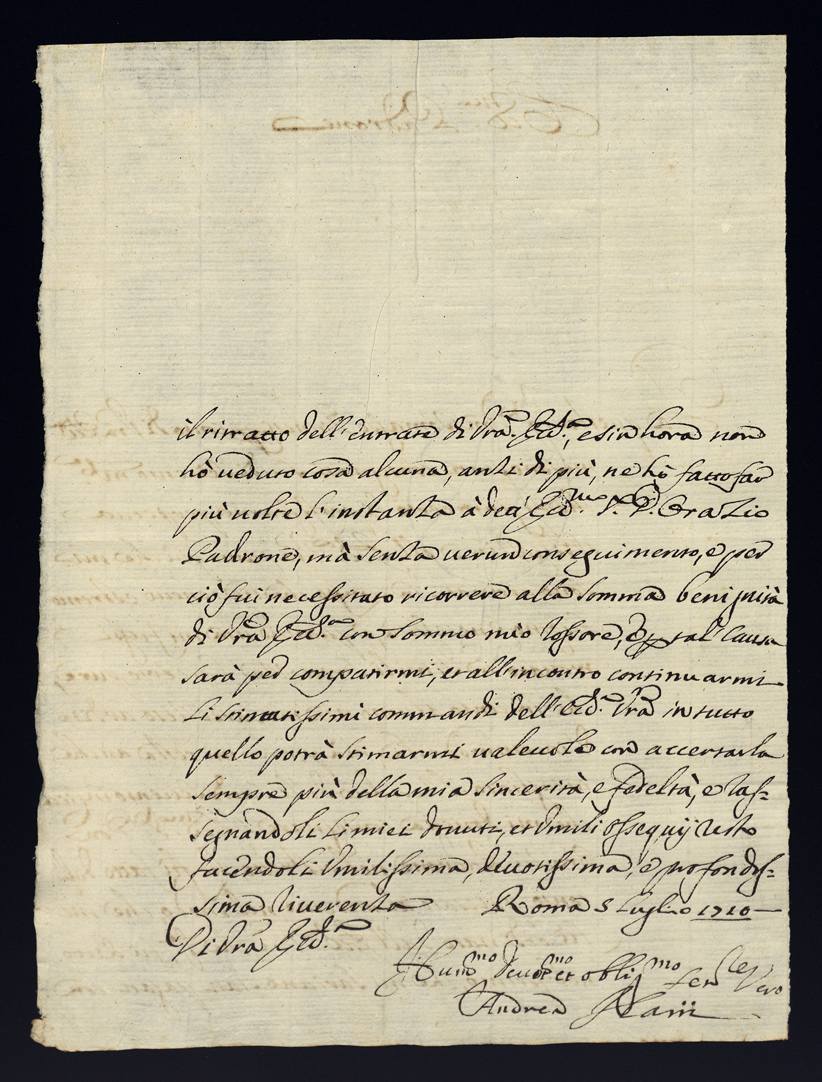 il ritratto dell'entrate di Vrã. Ecc.ª, e sin hora non
hò veduto cosa alcuna, anzi di più, ne hò fatto far
più volte l'instanza à
Padrone, mà senza verun conseguimento, e per
ciò fui necessitato ricorrere alla somma benignità
di Vrã Ecc.ª con sommo mio rossore, e tal causa
sarà per compatirmi, et all'incontro continuarmi
li stimatissimi commandi dell'Ecc.ª Vrã in tutto
quello potrà stimarmi valevole con accertarla
sempre più della mia sincerità, e fedeltà, e ras-
segnandoli li miei dovuti, et umili ossequij resto
facendoli umilissima, devotissima, e profondis-
sima riverenza Roma 5 Luglio 1710
Di Vrã Ecc.ª
Hum.mo Devot.mo et oblig.mo ser.re vero
Andrea